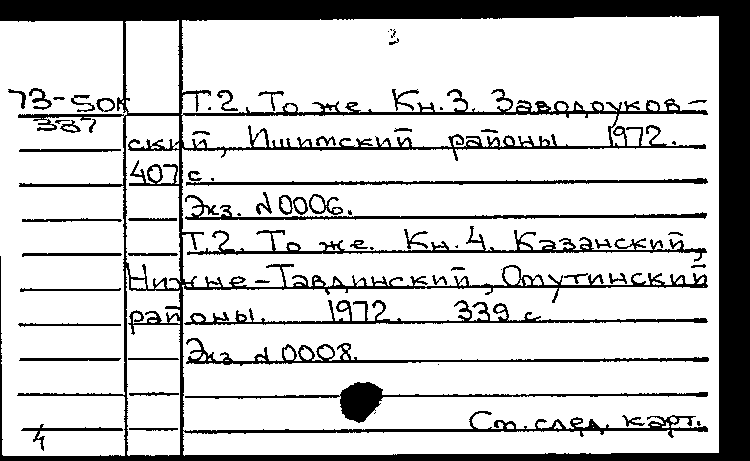 3
73-50к Т.2. То же. Кн.3. Заводоуков-
387
ский, Ишимский районы 1972.
407 с.
Экз. №0006.
Т.2. То же. Кн.4. Казанский,
Нижне-Тавдинский, Омутинский
районы. 1972. 339 с
Экз №0008.
См. след. карт.
4